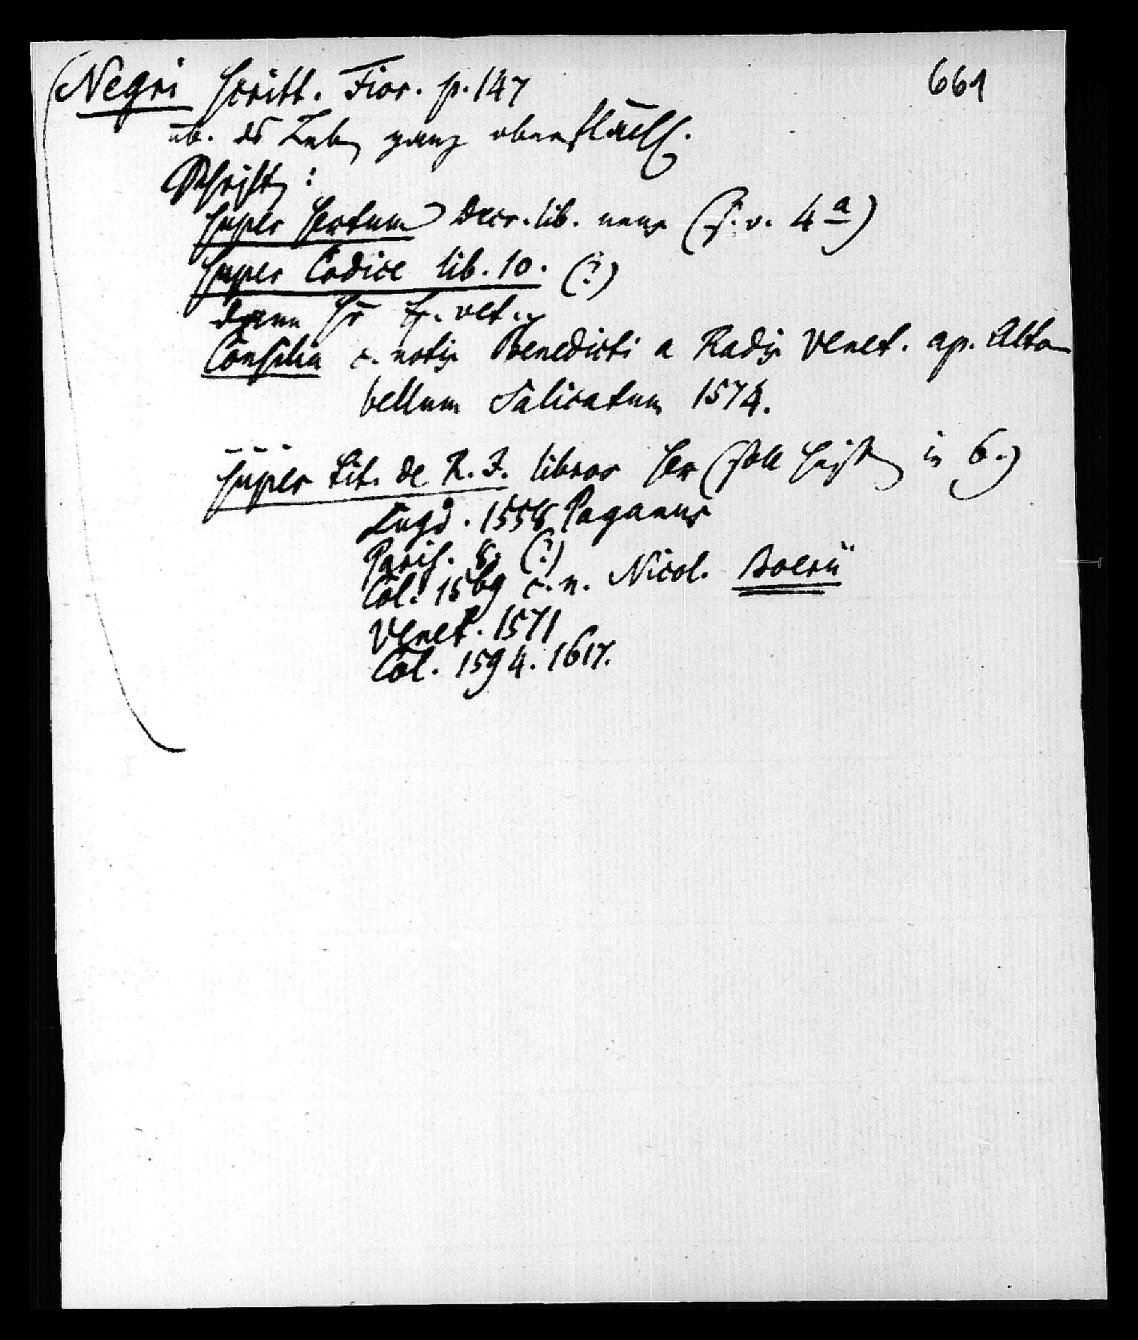 661
Negri Scritt. Fior. p. 147
üb. ds Leben ganz oberflächl.
Schriften:
super Sextum Decr. lib. unus (s. v. 4a)
super Codice lib. 10. (?)
dann
Consilia c. notis Benedicti a Radis Venet. ap. Alto
bellum Salicatum 1574.
super tit. de R. J. libros sex (soll heißen in 6.)
Lugd. 1558 Paganus
Paris. 8. (?)
Col. 1569 c. n. Nicol. Boerii
Venet. 1571
Col. 1594. 1617.